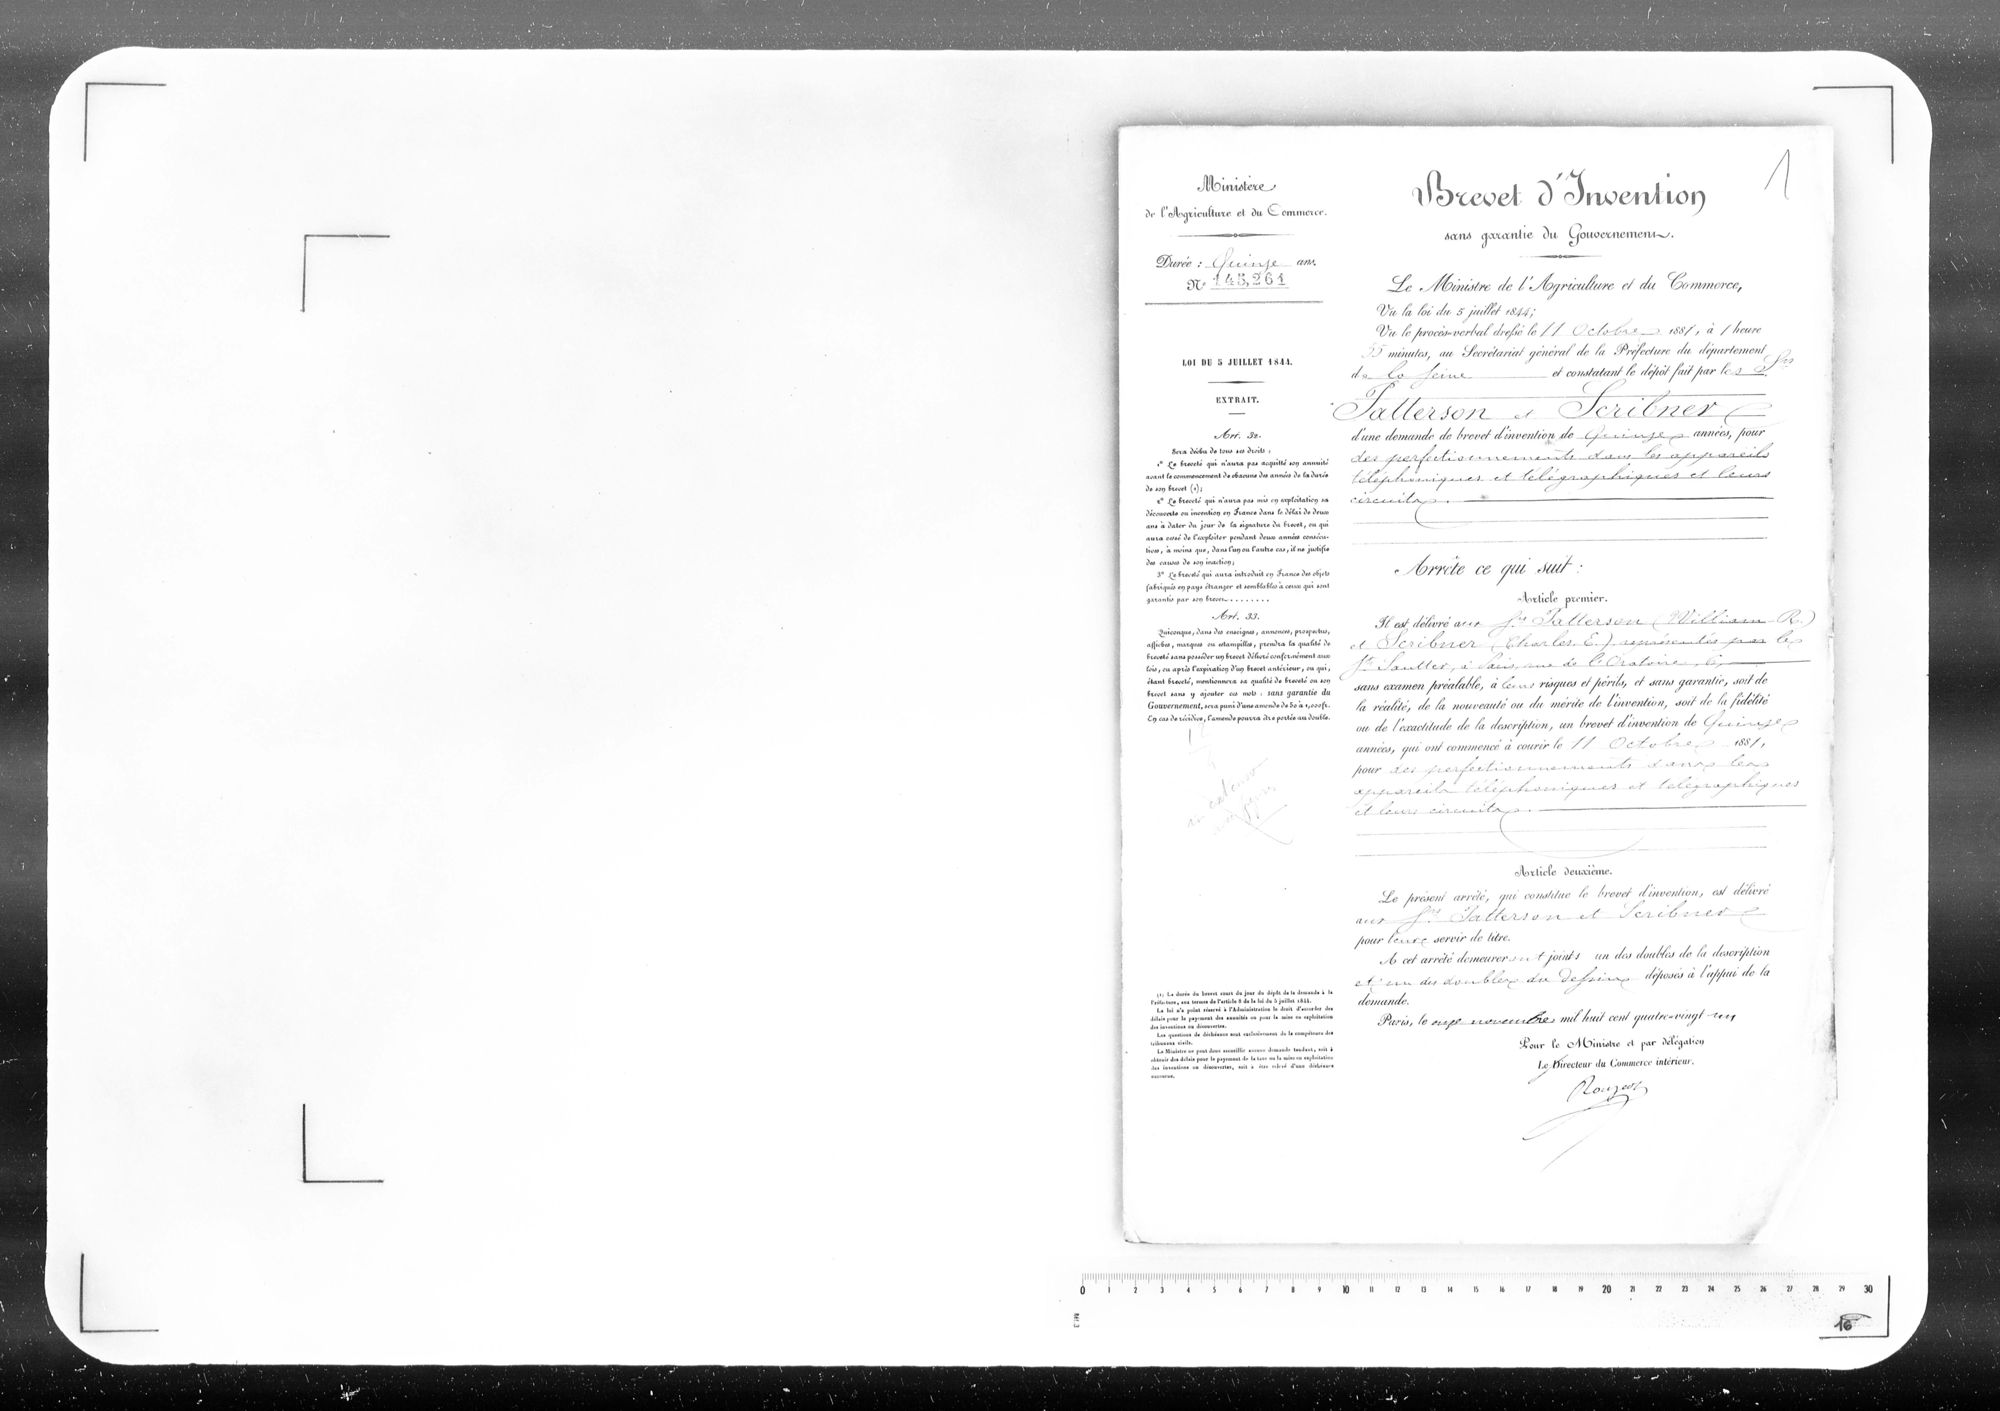 1
Ministère
de l'Agriculture et du Commerce.
Durée : Quinze ans.
N° 145,261
LOI DU 5 JUILLET 1844.
EXTRAIT.
Art. 32.
Sera déchu de tous ses droits :
1° Le breveté qui n'aura pas acquitté son annuité
avant le commencement de chacune des années de la durée
de son brevet (1);
2° Le breveté qui n'aura pas mis en exploitation sa
découverte ou invention en France dans le délai de deux
ans à dater du jour de la signature du brevet, ou qui
aura cessé de l'exploiter pendant deux années consécu-
tives, à moins que, dans l'un ou l'autre cas, il ne justifie
des causes de son inaction;
3° Le breveté qui aura introduit en France des objets
fabriqués en pays étranger et semblables à ceux qui sont
garantis par son brevet.........
Art. 33.
Quiconque, dans des enseignes, annonces, prospectus,
affiches, marques ou estampilles, prendra la qualité de
breveté sans posséder un brevet délivré conformément aux
lois, ou après l'expiration d'un brevet antérieur, ou qui,
étant breveté, mentionnera sa qualité de breveté ou son
brevet sans y ajouter ces mots : sans garantie du
Gouvernement, sera puni d'une amende de 50 à 1,000 fr.
En cas de récidive, l'amende pourra être portée au double.
(1) La durée du brevet court du jour du dépôt de la demande à la
Préfecture, aux termes de l'article 8 de la loi du 5 juillet 1844.
La loi n'a point réservé à l'Administration le droit d'accorder des
délais pour le payement des annuités ou pour la mise en exploitation
des inventions ou découvertes.
Les questions de déchéance sont exclusivement de la compétence des
tribunaux civils.
Le Ministre ne peut donc accueillir aucune demande tendant, soit à
obtenir des délais pour le payement de la taxe ou la mise en exploitation
des inventions ou découvertes, soit à être relevé d'une déchéance
encourue.
Brevet d'Invention
sans garantie du Gouvernement.
Le Ministre de l'Agriculture et du Commerce,
Vu la loi du 5 juillet 1844;
Vu le procès-verbal dressé le 11 Octobre 1881, à 1 heure
55 minutes, au Secrétariat général de la Préfecture du département
de la Seine et constatant le dépôt fait par les Srs
Patterson et Scribner
d'une demande de brevet d'invention de Quinze années, pour
des perfectionnements dans les appareils
téléphoniques et télégraphiques et leurs
circuits.
Arrête ce qui suit :
Article premier.
Il est délivré aux Srs Patterson (William R.)
et Scribner (Charles E.) représentés par le
Sr Sautter, à Paris, rue de l'Oratoire,
sans examen préalable, à leurs risques et périls, et sans garantie, soit de
la réalité, de la nouveauté ou du mérite de l'invention, soit de la fidélité
ou de l'exactitude de la description, un brevet d'invention de Quinze
années, qui ont commencé à courir le 11 Octobre 1881,
pour des perfectionnements dans les
appareils téléphoniques et télégraphiques
et leurs circuits.
Article deuxième.
Le présent arrêté, qui constitue le brevet d'invention, est délivré
aux Srs Patterson et Scribner
pour leur servir de titre.
A cet arrêté demeureront joints un des doubles de la description
et un des doubles du dessin déposés à l'appui de la
demande.
Paris, le onze novembre mil huit cent quatre-vingt un
Pour le Ministre et par délégation
Le Directeur du Commerce intérieur.
0 1 2 3 4 5 6 7 8 9 10 11 12 13 14 15 16 17 18 19 20 21 22 23 24 25 26 27 28 29 30
16